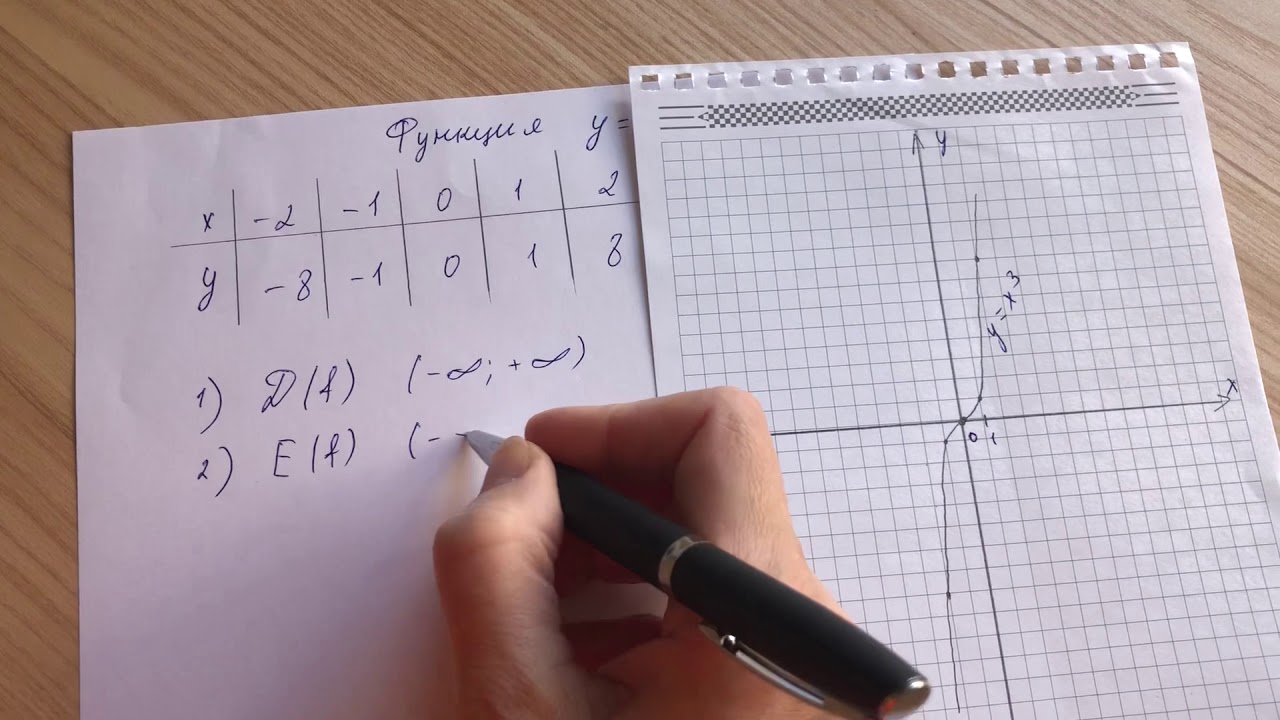 Функция y =
x -2 -1 0 1 2
y -8 -1 0 1 8
1) D(f) (-∞; +∞)
2) E(f) (-
y
y=x³
x
0 1